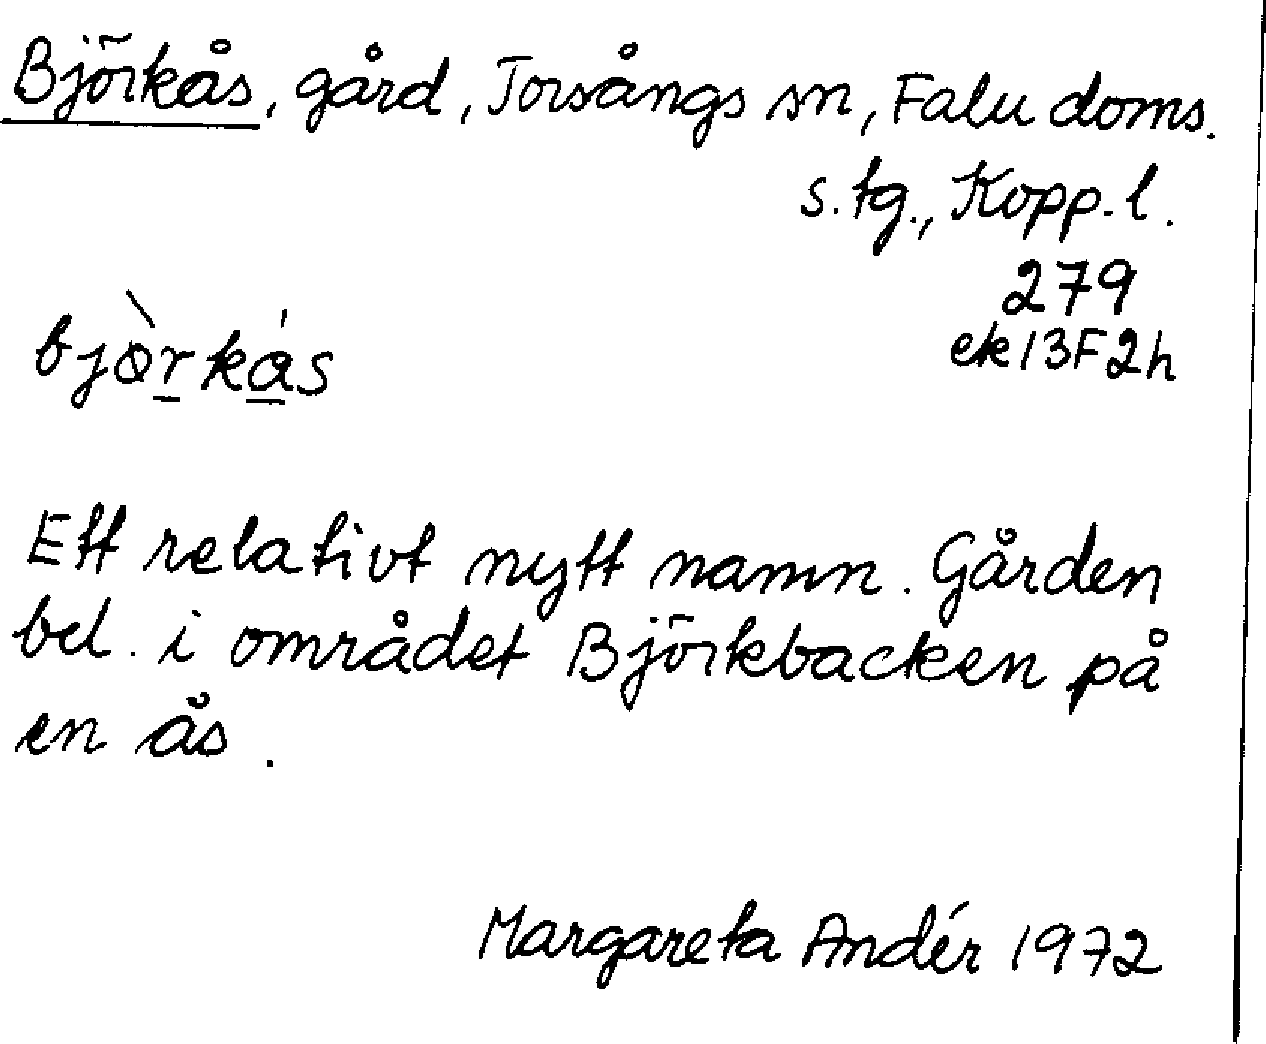 Björkås, gård, Torsångs sn, Falu doms.
s. tg., Kopp. l.
279
ek 13F2h
bjò̀rkás
Ett relativt nytt namn. Gården
bel. i området Björkbacken på
en ås.
Margareta Andér 1972